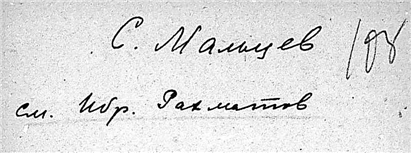 С. Мальцев
см. Ибр. Рахматов